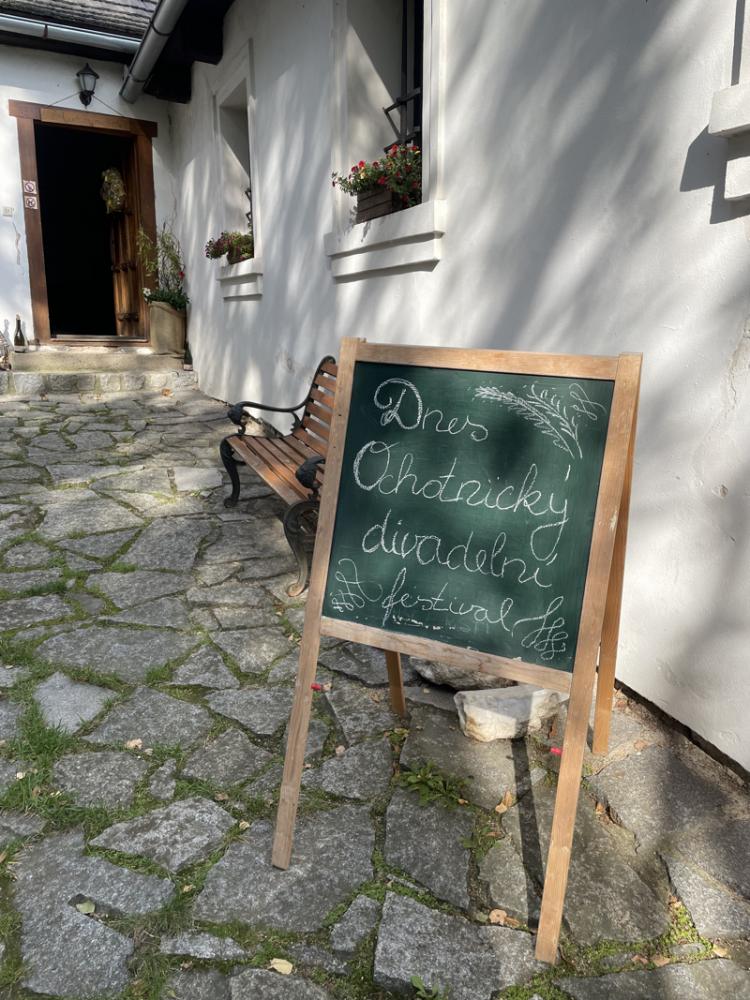 Dnes
Ochotnický
divadelní
festival